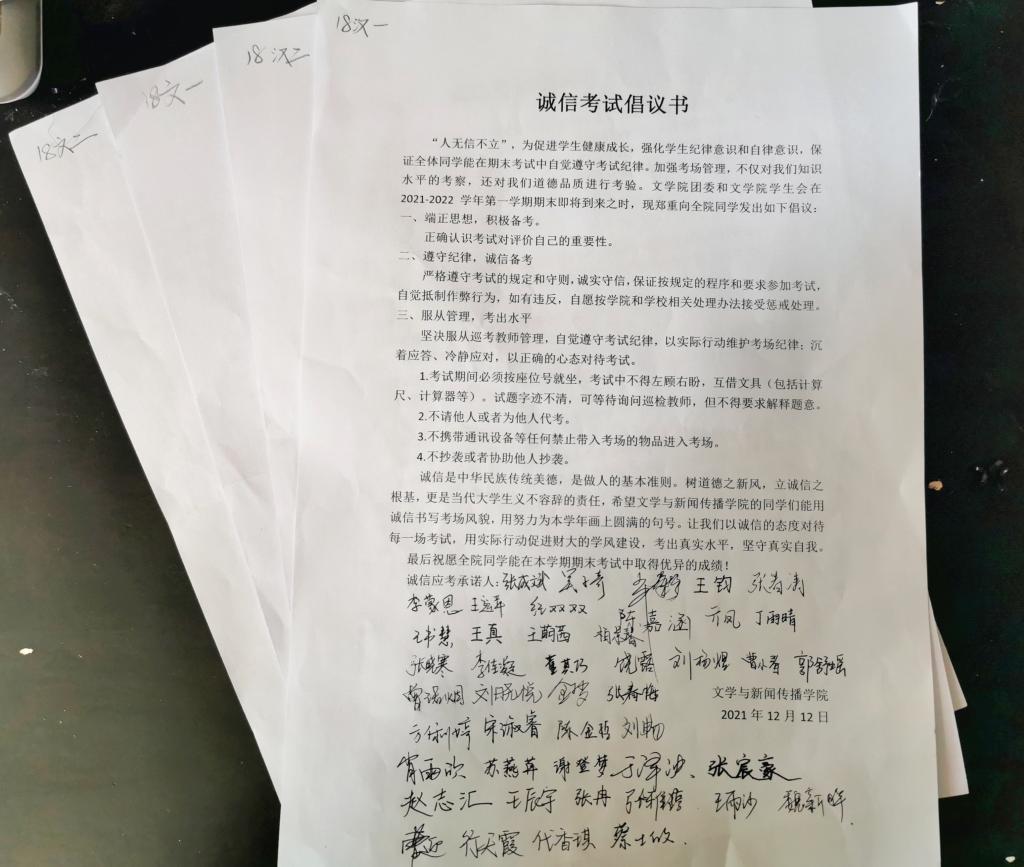 18汉一
18汉二
18文一
18文二
诚信考试倡议书
“人无信不立”，为促进学生健康成长，强化学生纪律意识和自律意识，保
证全体同学能在期末考试中自觉遵守考试纪律。加强考场管理，不仅对我们知识
水平的考察，还对我们道德品质进行考验。文学院团委和文学院学生会在
2021-2022 学年第一学期期末即将到来之时，现郑重向全院同学发出如下倡议：
一、端正思想，积极备考。
正确认识考试对评价自己的重要性。
二、遵守纪律，诚信备考
严格遵守考试的规定和守则，诚实守信，保证按规定的程序和要求参加考试，
自觉抵制作弊行为，如有违反，自愿按学院和学校相关处理办法接受惩戒处理。
三、服从管理，考出水平
坚决服从巡考教师管理，自觉遵守考试纪律，以实际行动维护考场纪律；沉
着应答、冷静应对，以正确的心态对待考试。
1.考试期间必须按座位号就坐，考试中不得左顾右盼，互借文具（包括计算
尺、计算器等）。试题字迹不清，可等待询问巡检教师，但不得要求解释题意。
2.不请他人或者为他人代考。
3.不携带通讯设备等任何禁止带入考场的物品进入考场。
4.不抄袭或者协助他人抄袭。
诚信是中华民族传统美德，是做人的基本准则。树道德之新风，立诚信之
根基，更是当代大学生义不容辞的责任，希望文学与新闻传播学院的同学们能用
诚信书写考场风貌，用努力为本学年画上圆满的句号。让我们以诚信的态度对待
每一场考试，用实际行动促进财大的学风建设，考出真实水平，坚守真实自我。
最后祝愿全院同学能在本学期期末考试中取得优异的成绩！
诚信应考承诺人：张成斌 王钧 张春涛
李蒙恩 丁雨晴
王书慧 王真 王萌茜 陈嘉涵 亓凤
张晓寒 李佳凝 董真巧 饶露 刘杨煜 曹小青 郭舒瑶
刘悦悦 金梦 张春梅
文学与新闻传播学院
2021 年 12 月 12 日
宋淑睿 陈金哲 刘畅
肖雨欣 苏燕萍 谢登梦 于泽沙、张宸豪
赵志汇 王辰宇 张冉 王雨沙 魏新晔
行天霞 代香琪 蔡士欣